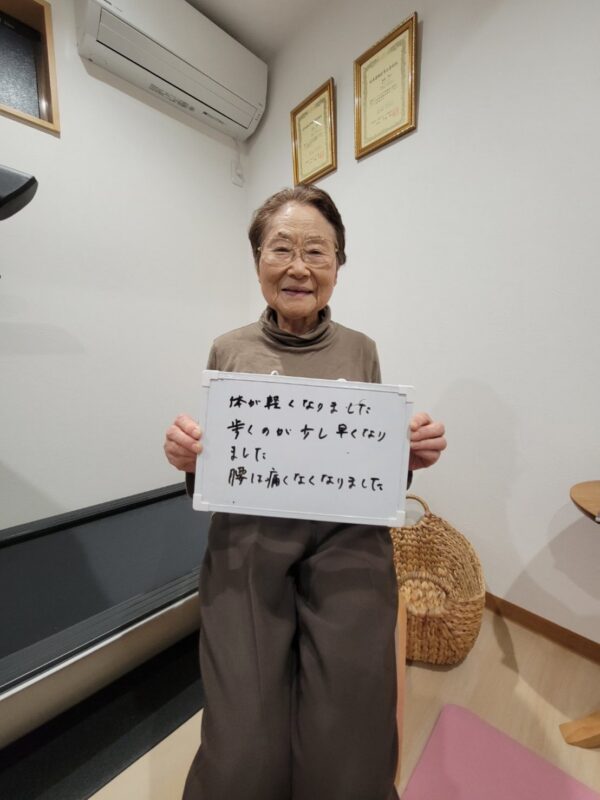 体が軽くなりました
歩くのが少し早くなり
ました
腰は痛くなくなりました